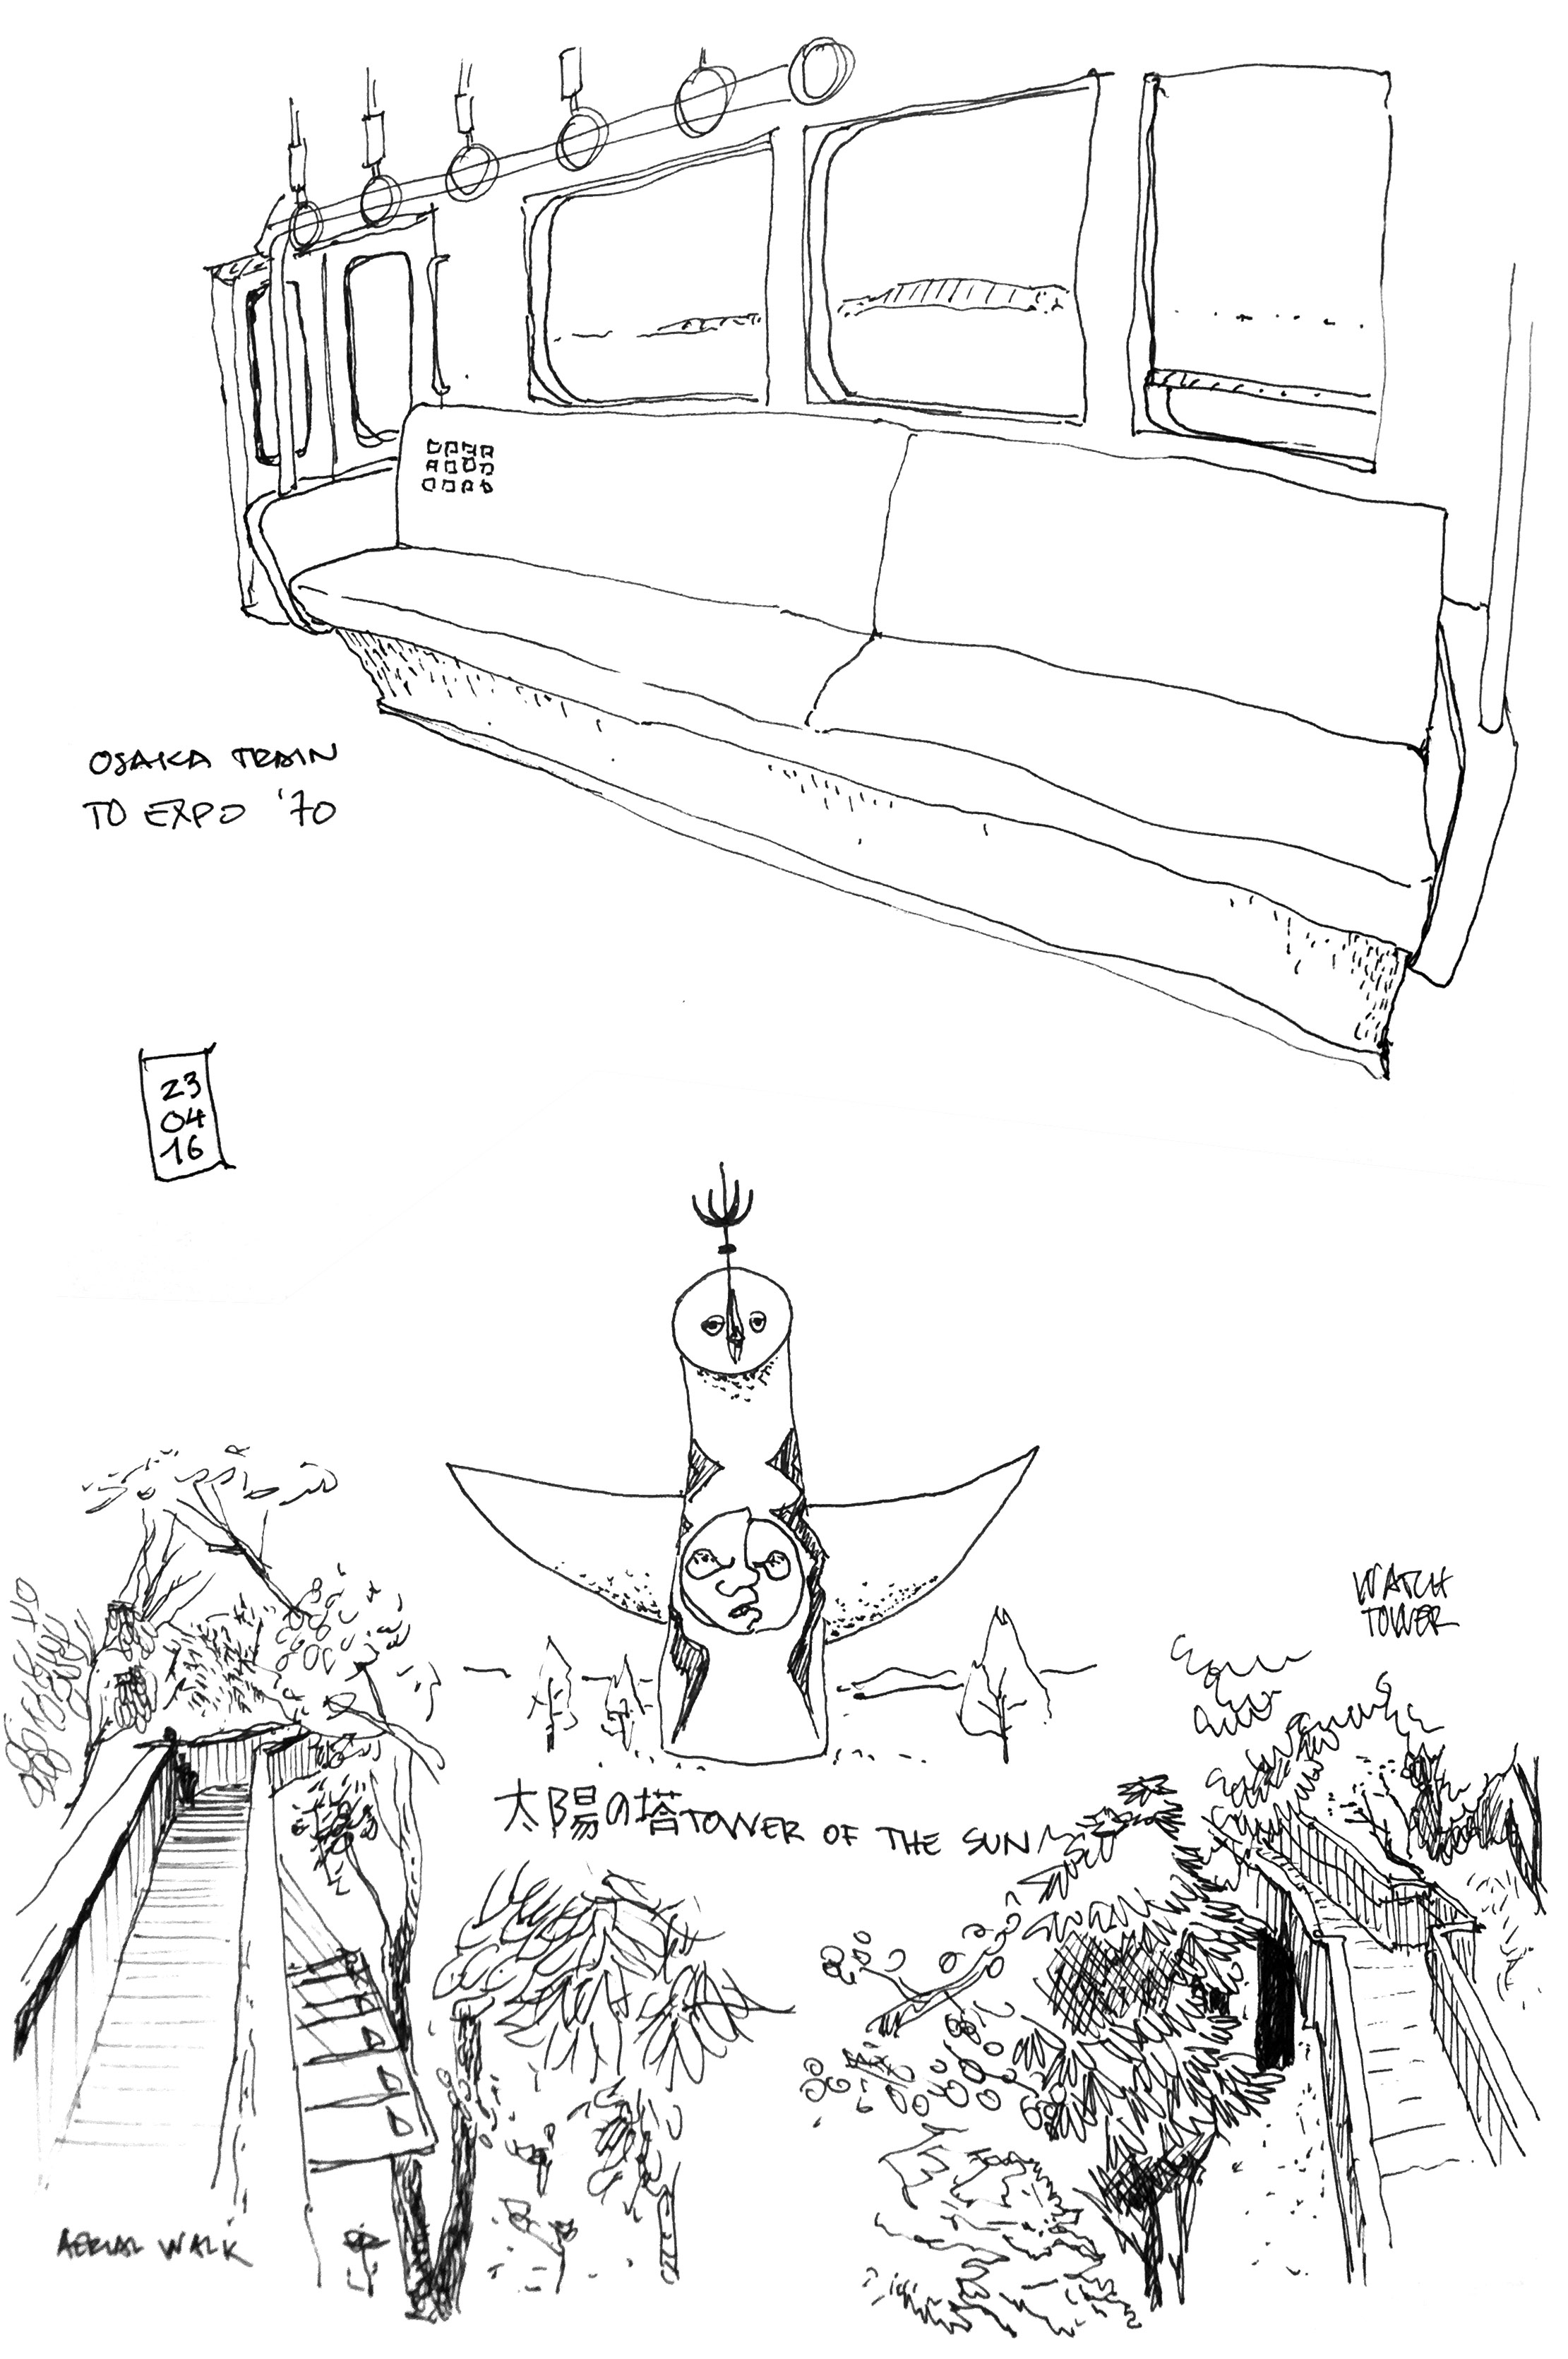 OSAKA TRAIN
TO EXPO '70
23
04
16
WATCH
TOWER
太陽の塔 TOWER OF THE SUN
AERIAL WALK